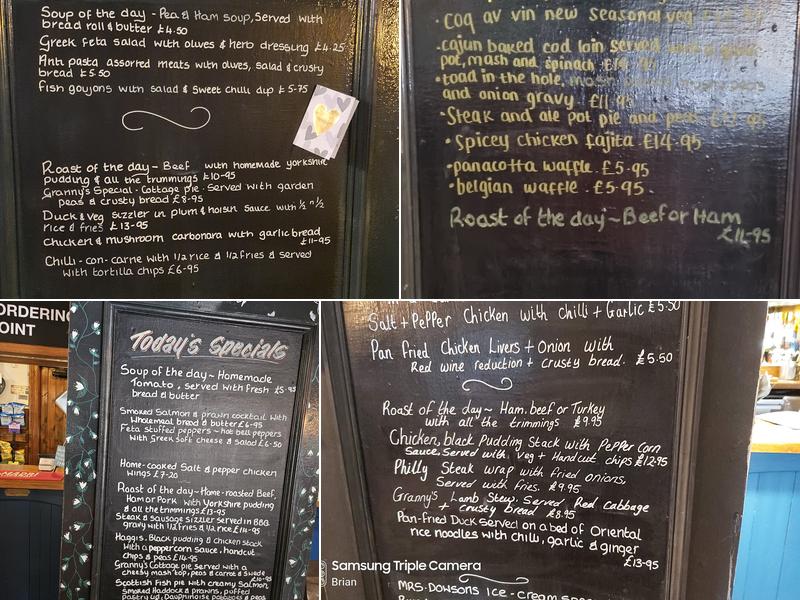 Soup of the day - Pea & Ham soup, Served with
bread roll & butter £4.50
Greek feta salad with olives & herb dressing £4.25
Anti pasta assorted meats with olives, salad & crusty
bread £5.50
fish goujons with salad & sweet chilli dip £5-75
Roast of the day - Beef with homemade yorkshire
pudding & all the trimmings £10-95
Granny's Special - Cottage pie. Served with garden
peas & crusty bread £8-95
Duck & veg sizzler in plum & hoisin sauce with ½ n ½
rice & fries £13-95
Chicken & mushroom carbonara with garlic bread
£11-95
Chilli - con - carne with 1/2 rice & 1/2 fries & served
with tortilla chips £6-95
• coq av vin new seasonal veg
• cajun baked cod loin served
pot, mash and spinach £14.95
• toad in the hole,
and onion gravy £11.95
• Steak and ale pot pie and peas
• Spicey chicken fajita. £14.95
• panacotta waffle. £5.95
• belgian waffle. £5.95.
Roast of the day ~ Beef or Ham
£11-95
ORDERING
POINT
Today's Specials
Soup of the day ~ Homemade
Tomato, served with fresh £5-95
bread & butter
Smoked Salmon & prawn cocktail with
Wholemeal bread & butter £6-95
Feta stuffed peppers ~ hot bell peppers
with Greek soft cheese & salad £6-50
Home-cooked Salt & pepper chicken
wings £7-20
Roast of the day ~ Home-roasted Beef,
Ham or Pork with Yorkshire pudding
& all the trimmings £13-95
Steak & sausage sizzler served in BBQ
gravy with 1/2 fries & 1/2 rice £14-95
Haggis, Black pudding & chicken stack
with a peppercorn sauce, handcut
chips & peas £14-95
Granny's Cottage pie served with a
cheesy mash top, peas & carrot & swede
£10-95
Scottish fish pie with creamy Salmon,
Smoked Haddock & prawns, puffed
pastry lid, Dauphinoise potatoes & peas
Salt + Pepper Chicken with chilli + Garlic £5.50
Pan Fried Chicken Livers + Onion with
Red wine reduction + crusty bread. £5.50
Roast of the day ~ Ham, beef or Turkey
with all the trimmings £9.95
Chicken, black Pudding Stack with Pepper Corn
Sauce, Served with veg + Handcut chips £12-95
Philly Steak wrap with fried onions,
Served with fries. £9.95
Granny's Lamb Stew. Served Red cabbage
+ crusty bread £8.95
Pan-Fried Duck served on a bed of Oriental
rice noodles with chilli, garlic & ginger
£13-95
MRS. DOWSONS ICE - CREAM
Samsung Triple Camera
Brian